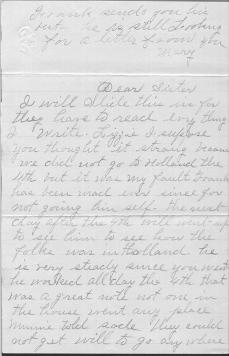 Frank sends you his
but he is still Looking
for a letter from you
Mary
Dear Sister
I will Write this in for
they have to read every thing
I Write. Lizzie I suppose
you thought it strang because
we did not go to Holland the
4th but it was my fault Frank
has been mad ever since for
not going him self. the next
day after the 4th will went up
to see him to see how the
folks was in Holland he
is very steady since you went
he worked all day the 4th that
was a great note not one in
the house went any place
Minnie told sade they could
not get will to go any where